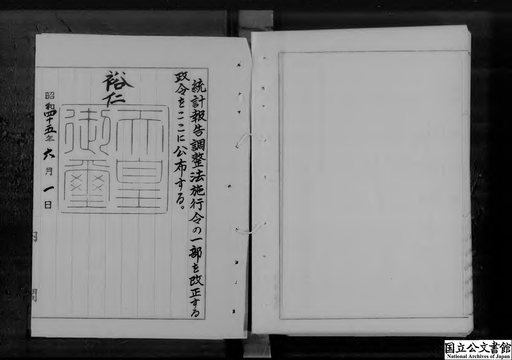 統計報告調整法施行令の一部を改正する
政令をここに公布する。
裕仁
天皇
御璽
昭和四十五年六月一日
内閣
国立公文書館
National Archives of Japan